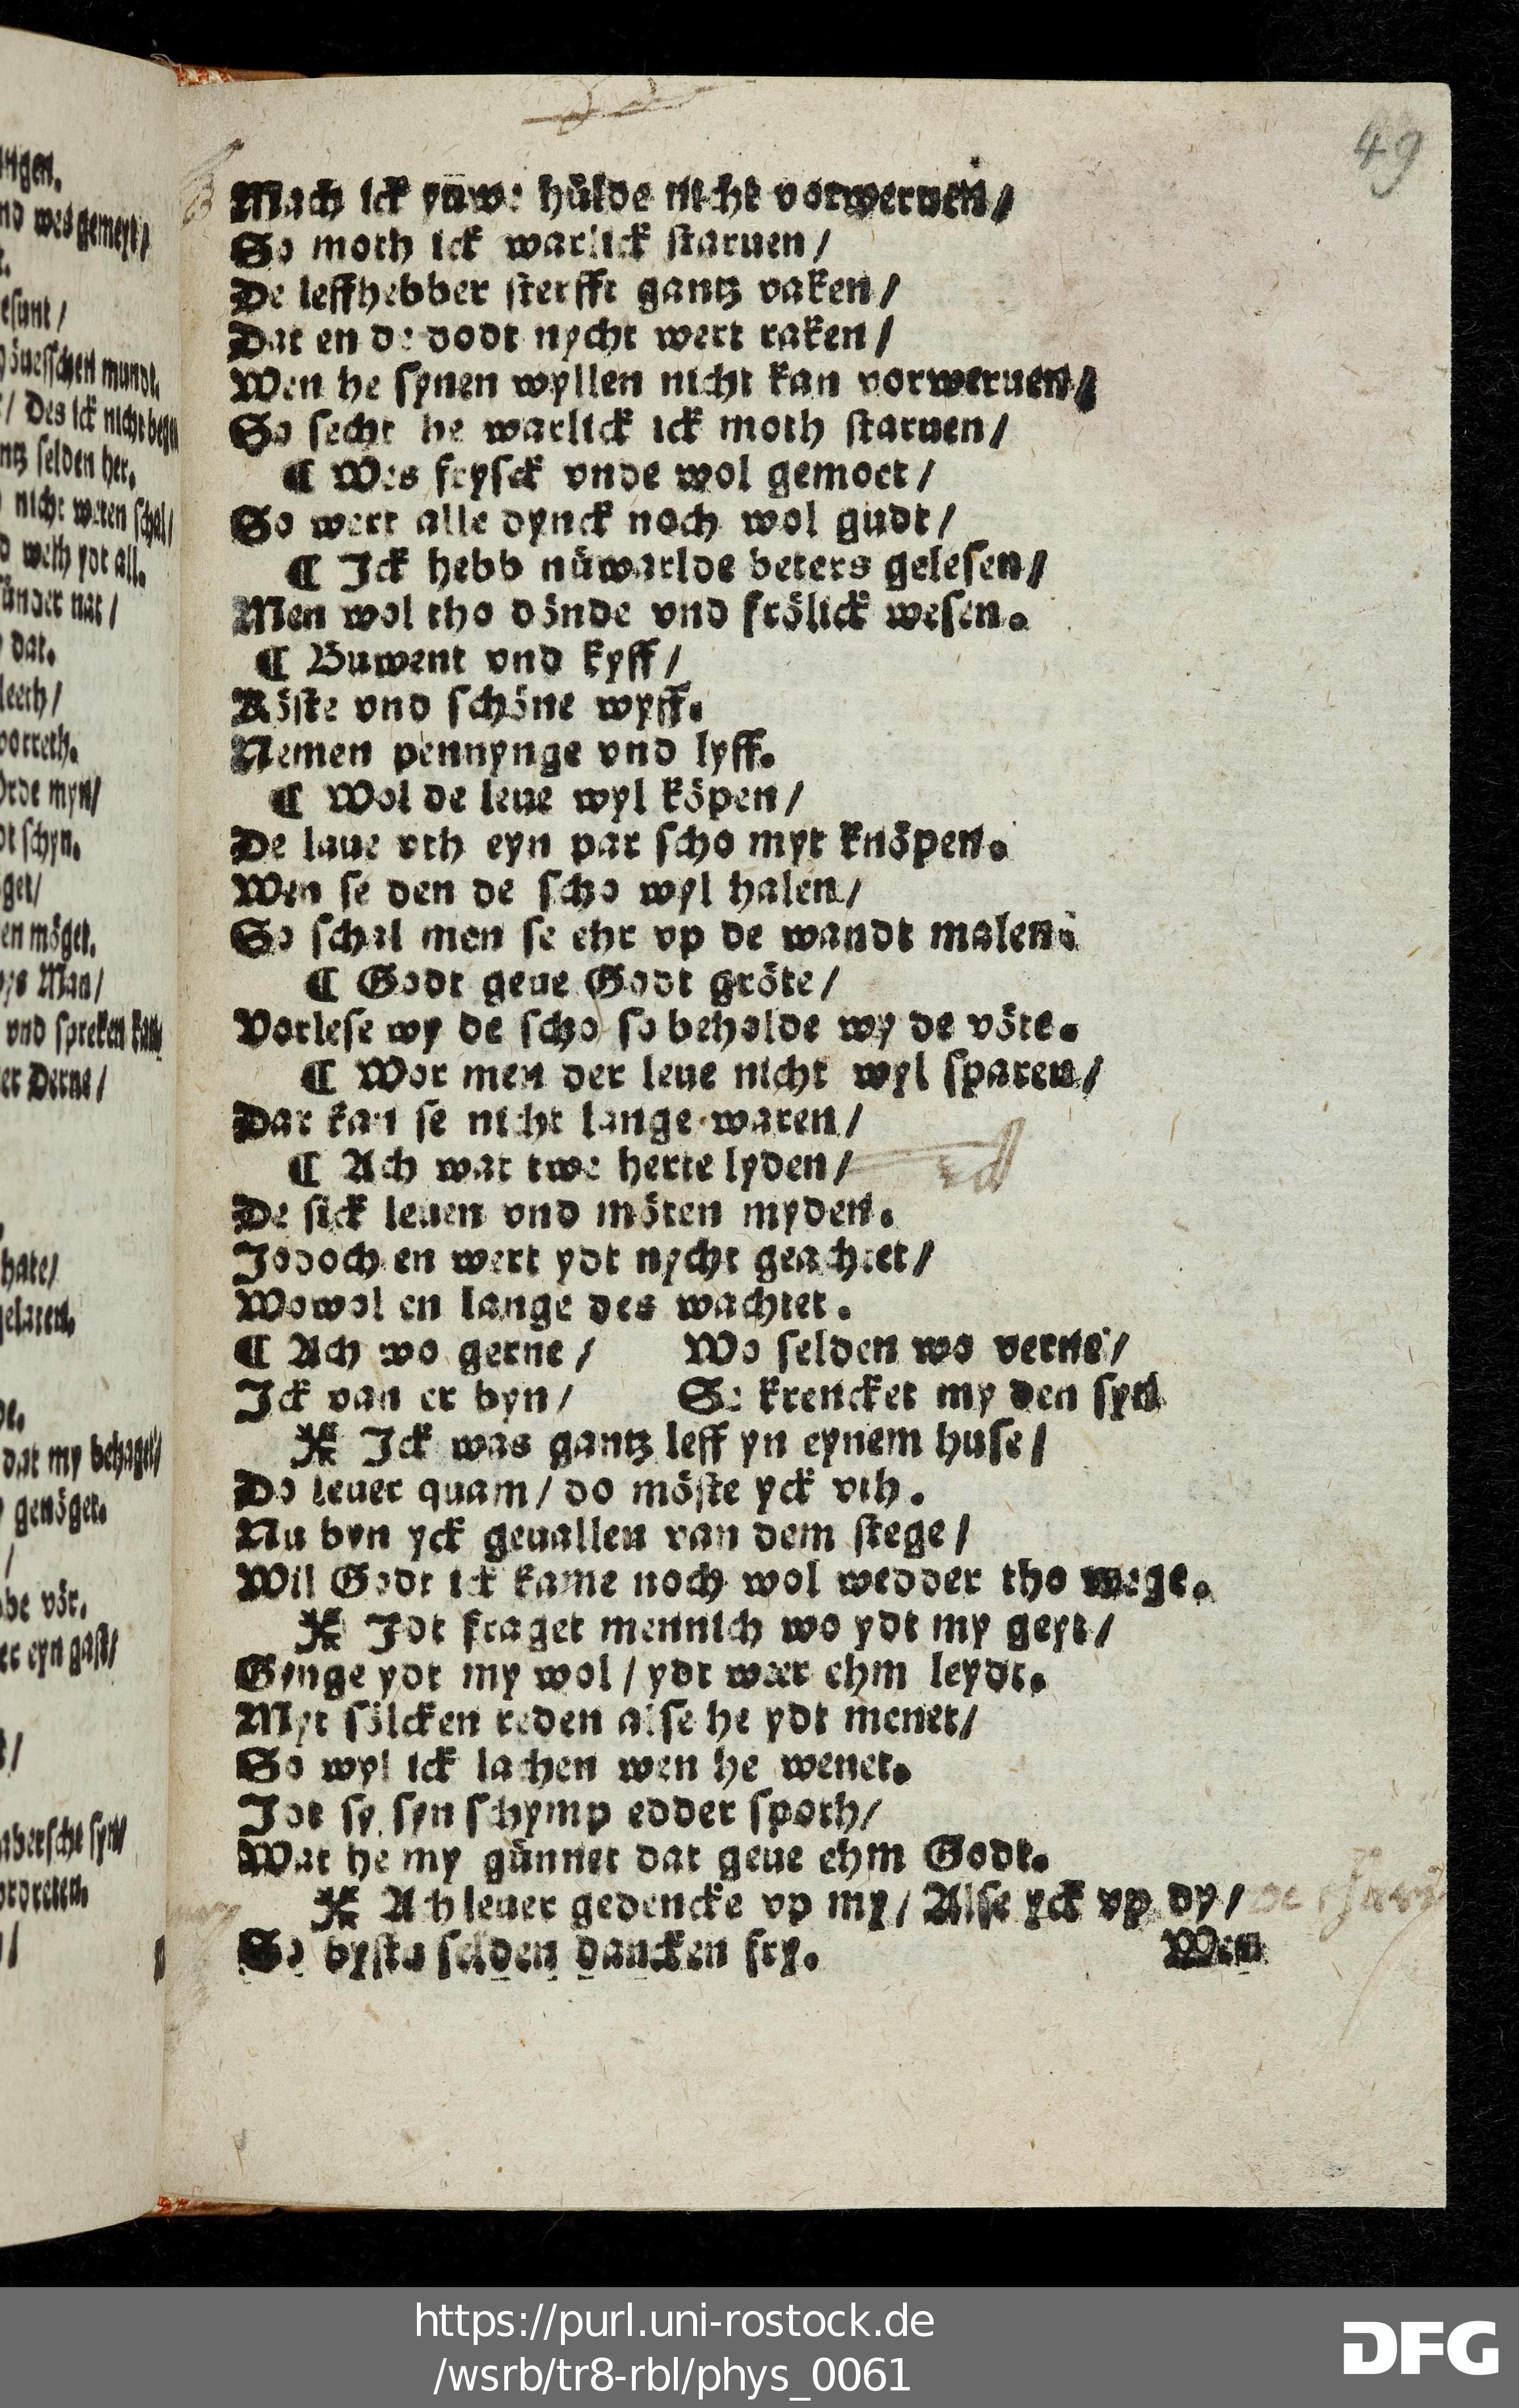 49
Mach ick yüwe hülde nicht vorweruen/
So moth ick warlick staruen/
De leffhebber sterfft gantz vaken/
Dat en de dodt nycht wert raken/
Wen he synen wyllen nicht kan vorweruen/
So secht he warlick ick moth staruen/
¶ Wes frysck vnde wol gemoet/
So wert alle dynck noch wol gudt/
¶ Ick hebb nüwarlde beters gelesen/
Men wol tho dönde vnd frölick wesen.
¶ Buwent vnd kyff/
Köste vnd schöne wyff.
Nemen pennynge vnd lyff.
¶ Wol de leue wyl köpen/
De laue vth eyn par scho myt knöpen.
Wen se den de scho wyl halen/
So schal men se ehr vp de wandt malen.
¶ Godt geue Godt gröte/
Vorlese wy de scho so beholde wy de vöte.
¶ Wor men der leue nicht wyl sparen/
Dar kan se nicht lange waren/
¶ Ach wat twe herte lyden/
De sick leuen vnd möten myden.
Jodoch en wert ydt nycht geachtet/
Wowol en lange des wachtet.
¶ Ach wo gerne/ Wo selden wo verne/
Ick van er byn/ Se krencket my den syn
Ick was gantz leff yn eynem huse/
Do leuer quam/ do möste yck vth.
Nu byn yck geuallen van dem stege/
Wil Godt ick kame noch wol wedder tho wege.
Idt fraget mennich wo ydt my geyt/
Gynge ydt my wol/ ydt weer ehm leydt.
Myt sölcken reden alse he ydt menet/
So wyl ick lachen wen he wenet.
Idt sy syn schymp edder spoth/
Wat he my günnet dat geue ehm Godt.
Ach leuer gedencke vp my/ Alse yck vp dy/
So bystu selden dancken fry.
Wen
https://purl.uni-rostock.de
/wsrb/tr8-rbl/phys_0061
DFG